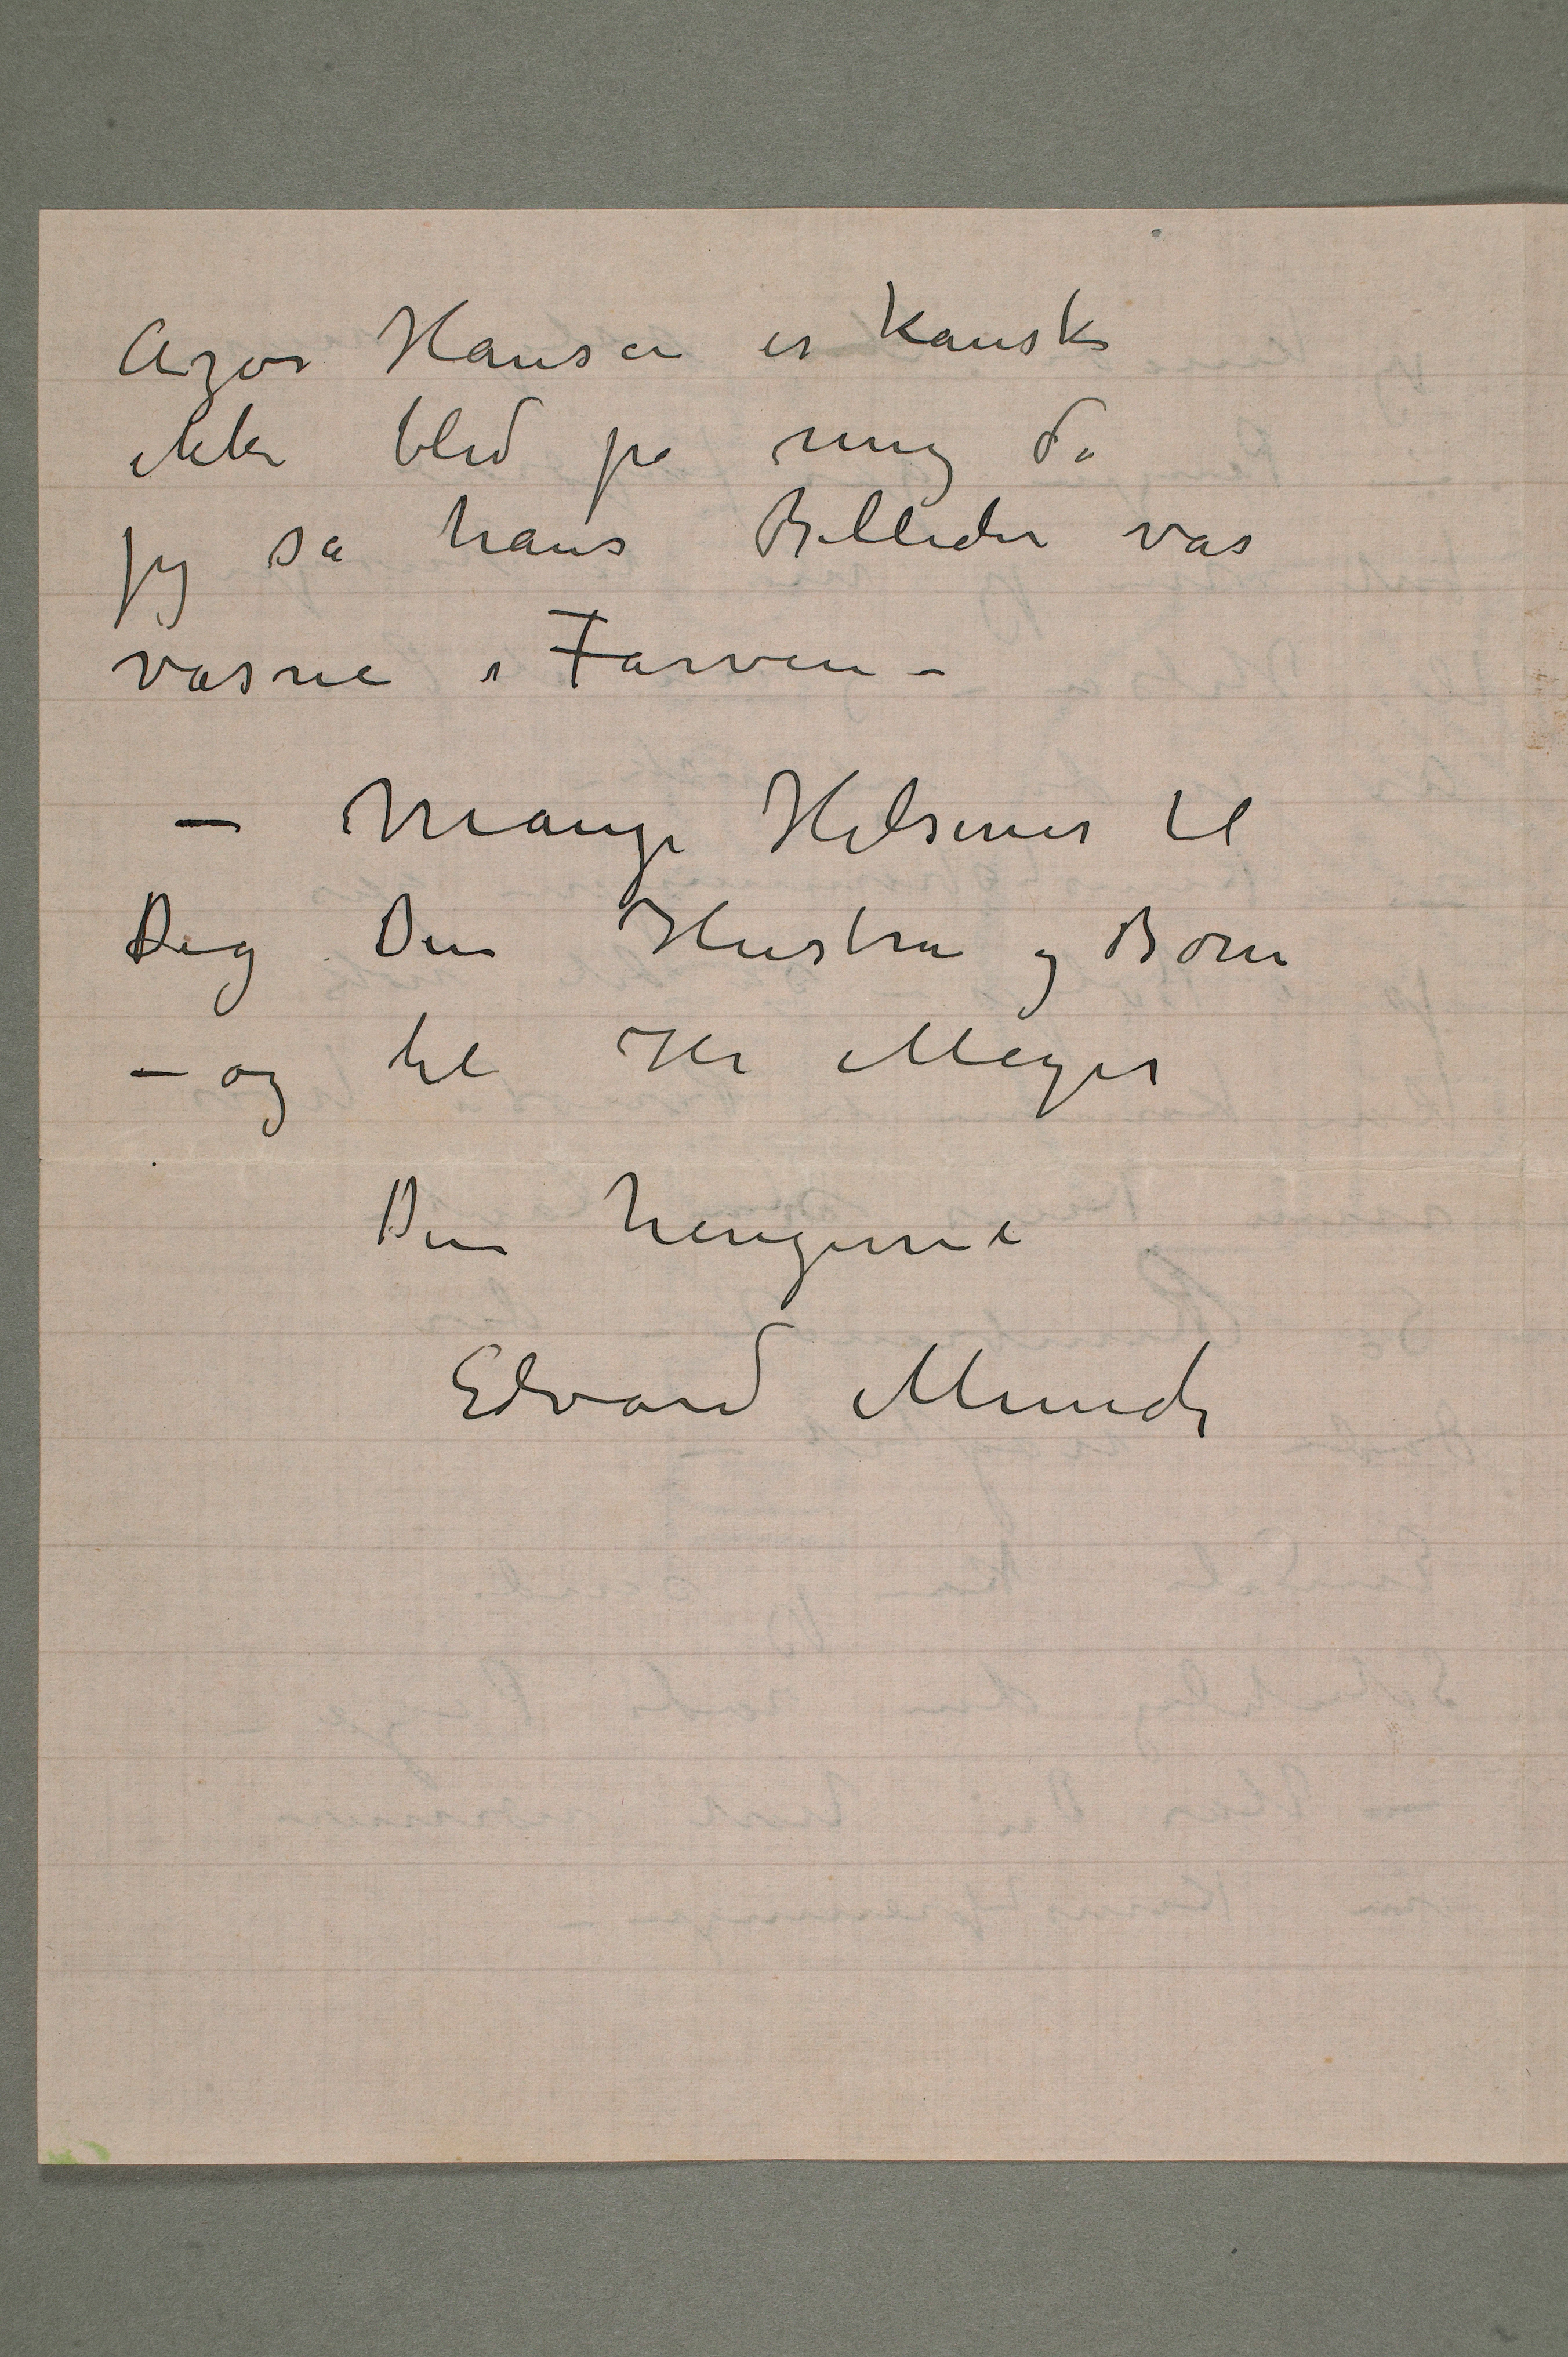 Azor Hansen er kanske
ikke blid på mig da
jeg sa hans Billeder var
vasne i Farven –
– Mange Hilsener til
Dig Din Hustru og Børn
– og til Hr Meyer
Din hengivne
Edvard Munch